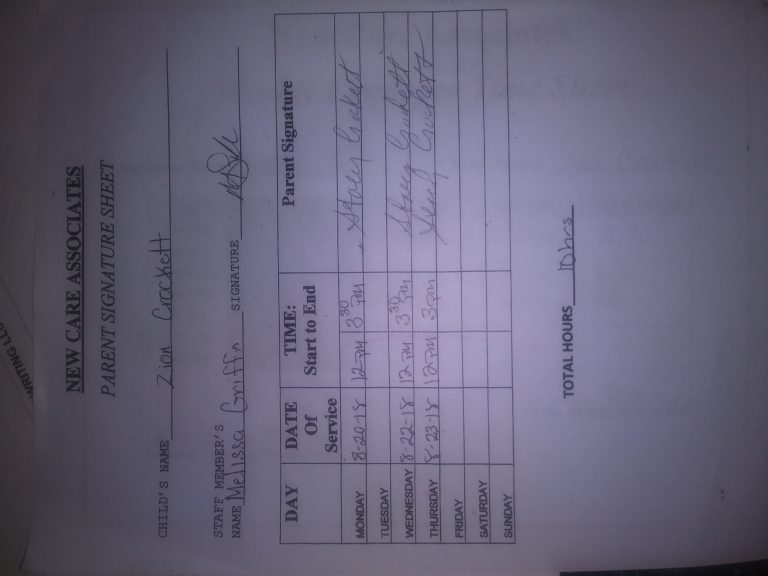 WRITING LLC
NEW CARE ASSOCIATES
PARENT SIGNATURE SHEET
CHILD'S NAME Zion Crockett
STAFF MEMBER'S
NAME Melissa Griffin SIGNATURE
DAY DATE Of Service TIME: Start to End Parent Signature
MONDAY 8-20-18 12pm 3 30 pm Stacy Crockett
TUESDAY
WEDNESDAY 8-22-18 12pm 3 30 pm Stacy Crockett
THURSDAY 8-23-18 12pm 3pm Crockett
FRIDAY
SATURDAY
SUNDAY
TOTAL HOURS 10hrs